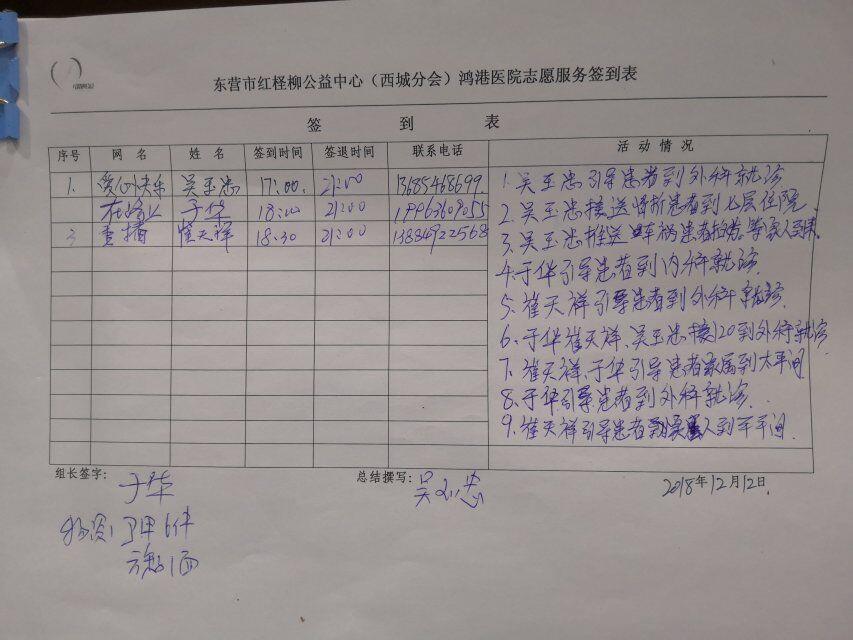 东营市红柽柳公益中心（西城分会）鸿港医院志愿服务签到表
签 到 表
序号 网 名 姓 名 签到时间 签退时间 联系电话 活 动 情 况
1. 爱心快乐 吴玉忠 17:00. 21:00 13685468699.
在路上 于华 18:00 21:00
3 崔天祥 18.30 21:00 13884922568
1. 吴玉忠引导患者到外科就诊
2. 吴玉忠接送骨折患者到七层住院.
3. 吴玉忠推送车祸患者
4. 于华引导患者到内科就诊.
5. 崔天祥引导患者到外科就诊.
6. 于华崔天祥、吴玉忠接120到外科就诊
7. 崔天祥、于华引导患者家属到太平间
8. 于华引导患者到外科就诊.
9. 崔天祥引导患者
组长签字： 于华
总结撰写： 吴玉忠
2018年12月12日.
物资：马甲6件
旗1面